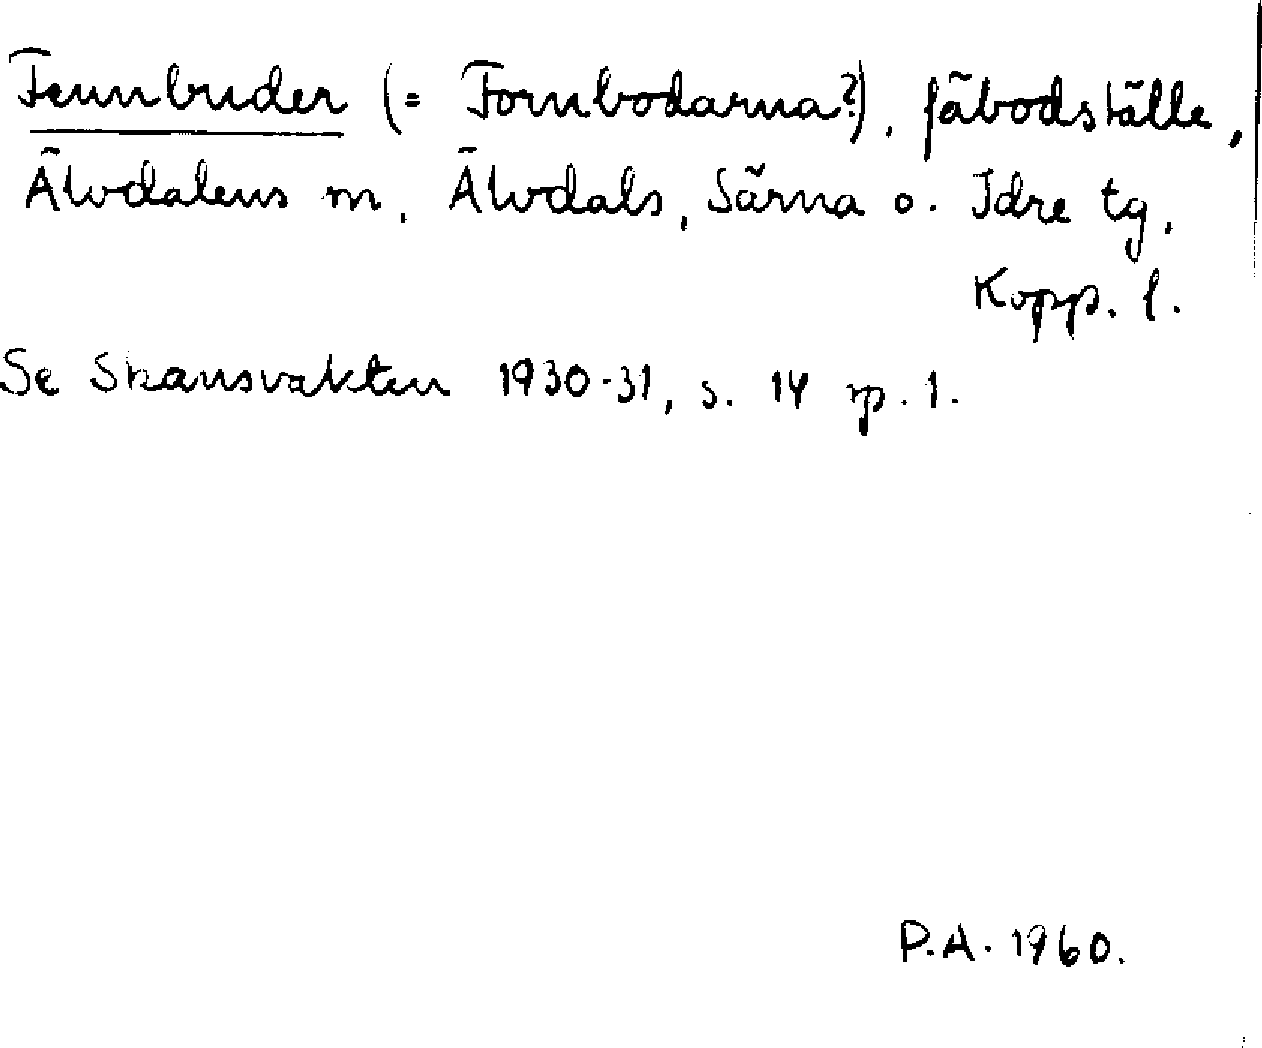 Fennbuder (= Fornbodarna?), fäbodställe,
Älvdalens m, Älvdals, Särna o. Idre tg,
Kopp. l.
Se Skansvakten 1930-31, s. 14 sp. 1.
P.A. 1960.